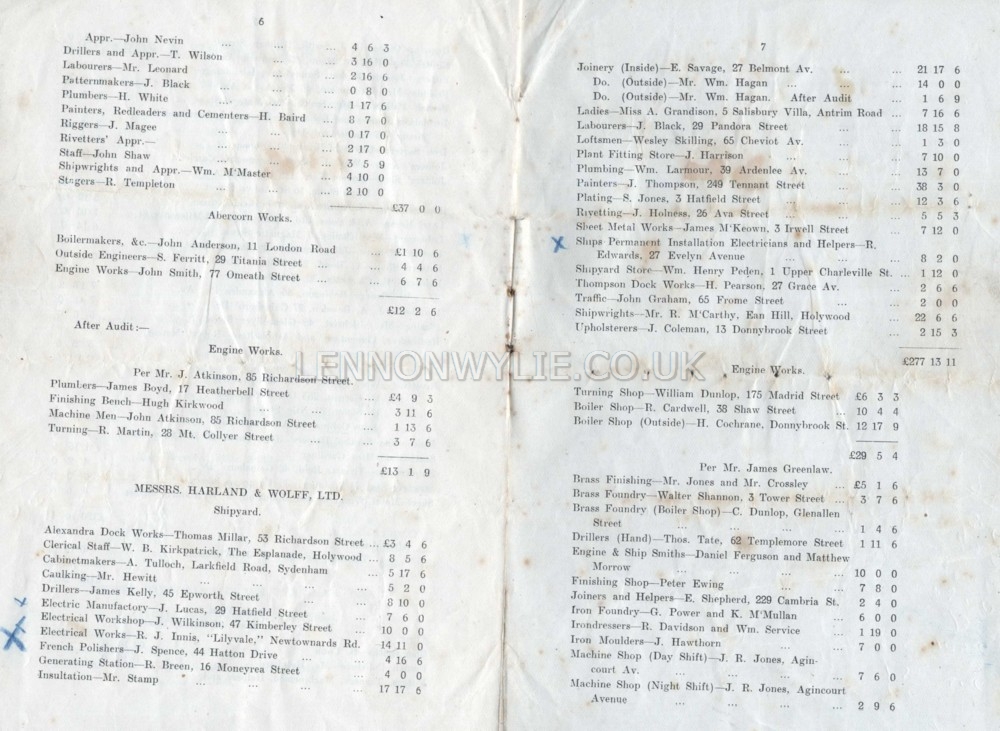 6
Appr.—John Nevin ... ... ... 4 6 3
Drillers and Appr.—T. Wilson ... ... 3 16 0
Labourers—Mr. Leonard ... ... ... 2 16 6
Patternmakers—J. Black ... ... ... 0 8 0
Plumbers—H. White ... ... ... 1 17 6
Painters, Redleaders and Cementers—H. Baird ... 8 7 0
Riggers—J. Magee ... ... ... 0 17 0
Rivetters' Appr.— ... ... ... 2 17 0
Staff—John Shaw ... ... ... 3 5 9
Shipwrights and Appr.—Wm. M'Master ... 4 10 0
Stagers—R. Templeton ... ... ... 2 10 0
£37 0 0
Abercorn Works.
Boilermakers, &c.—John Anderson, 11 London Road £1 10 6
Outside Engineers—S. Ferritt, 29 Titania Street ... 4 4 6
Engine Works—John Smith, 77 Omeath Street ... ... 6 7 6
£12 2 6
After Audit:—
Engine Works.
Per Mr. J. Atkinson, 85 Richardson Street.
Plumbers—James Boyd, 17 Heatherbell Street ... £4 9 3
Finishing Bench—Hugh Kirkwood ... ... 3 11 6
Machine Men—John Atkinson, 85 Richardson Street ... 1 13 6
Turning—R. Martin, 28 Mt. Collyer Street ... ... 3 7 6
£13 1 9
MESSRS. HARLAND & WOLFF, LTD.
Shipyard.
Alexandra Dock Works—Thomas Millar, 53 Richardson Street ... £3 4 6
Clerical Staff—W. B. Kirkpatrick, The Esplanade, Holywood ... 8 5 6
Cabinetmakers—A. Tulloch, Larkfield Road, Sydenham ... 5 17 6
Caulking—Mr. Hewitt ... ... ... ... 5 2 0
Drillers—James Kelly, 45 Epworth Street ... ... 8 10 0
Electric Manufactory—J. Lucas, 29 Hatfield Street ... 7 6 0
Electrical Workshop—J. Wilkinson, 47 Kimberley Street ... 10 0 0
Electrical Works—R. J. Innis, "Lilyvale," Newtownards Rd. 14 11 0
French Polishers—J. Spence, 44 Hatton Drive ... ... 4 16 6
Generating Station—R. Breen, 16 Moneyrea Street ... 4 0 0
Insultation—Mr. Stamp ... ... ... ... 17 17 6
7
Joinery (Inside)—E. Savage, 27 Belmont Av. ... ... 21 17 6
Do. (Outside)—Mr. Wm. Hagan ... ... ... 14 0 0
Do. (Outside)—Mr. Wm. Hagan. After Audit ... 1 6 9
Ladies—Miss A. Grandison, 5 Salisbury Villa, Antrim Road ... 7 16 6
Labourers—J. Black, 29 Pandora Street ... ... 18 15 8
Loftsmen—Wesley Skilling, 65 Cheviot Av. ... ... 1 3 0
Plant Fitting Store—J. Harrison ... ... ... 7 10 0
Plumbing—Wm. Larmour, 39 Ardenlee Av. ... ... 13 7 0
Painters—J. Thompson, 249 Tennant Street ... ... 38 3 0
Plating—S. Jones, 3 Hatfield Street ... ... ... 12 3 6
Rivetting—J. Holness, 26 Ava Street ... ... ... 5 5 3
Sheet Metal Works—James M'Keown, 3 Irwell Street ... 7 12 0
Ships Permanent Installation Electricians and Helpers—R.
Edwards, 27 Evelyn Avenue ... ... ... 8 2 0
Shipyard Store—Wm. Henry Peden, 1 Upper Charleville St. ... 1 12 0
Thompson Dock Works—H. Pearson, 27 Grace Av. ... 2 6 6
Traffic—John Graham, 65 Frome Street ... ... 2 0 0
Shipwrights—Mr. R. M'Carthy, Ean Hill, Holywood ... 22 6 6
Upholsterers—J. Coleman, 13 Donnybrook Street ... 2 15 3
£277 13 11
Engine Works.
Turning Shop—William Dunlop, 175 Madrid Street ... £6 3 3
Boiler Shop—R. Cardwell, 38 Shaw Street ... ... 10 4 4
Boiler Shop (Outside)—H. Cochrane, Donnybrook St. 12 17 9
£29 5 4
Per Mr. James Greenlaw.
Brass Finishing—Mr. Jones and Mr. Crossley ... £5 1 6
Brass Foundry—Walter Shannon, 3 Tower Street ... 3 7 6
Brass Foundry (Boiler Shop)—C. Dunlop, Glenallen
Street ... ... ... ... 1 4 6
Drillers (Hand)—Thos. Tate, 62 Templemore Street 1 11 6
Engine & Ship Smiths—Daniel Ferguson and Matthew
Morrow ... ... ... ... 10 0 0
Finishing Shop—Peter Ewing ... ... ... 7 8 0
Joiners and Helpers—E. Shepherd, 229 Cambria St. 2 4 0
Iron Foundry—G. Power and K. M'Mullan ... 6 0 0
Irondressers—R. Davidson and Wm. Service ... 1 19 0
Iron Moulders—J. Hawthorn ... ... ... 7 0 0
Machine Shop (Day Shift)—J. R. Jones, Agin-
court Av. ... ... ... ... 7 6 0
Machine Shop (Night Shift)—J. R. Jones, Agincourt
Avenue ... ... ... ... 2 9 6
LENNONWYLIE.CO.UK